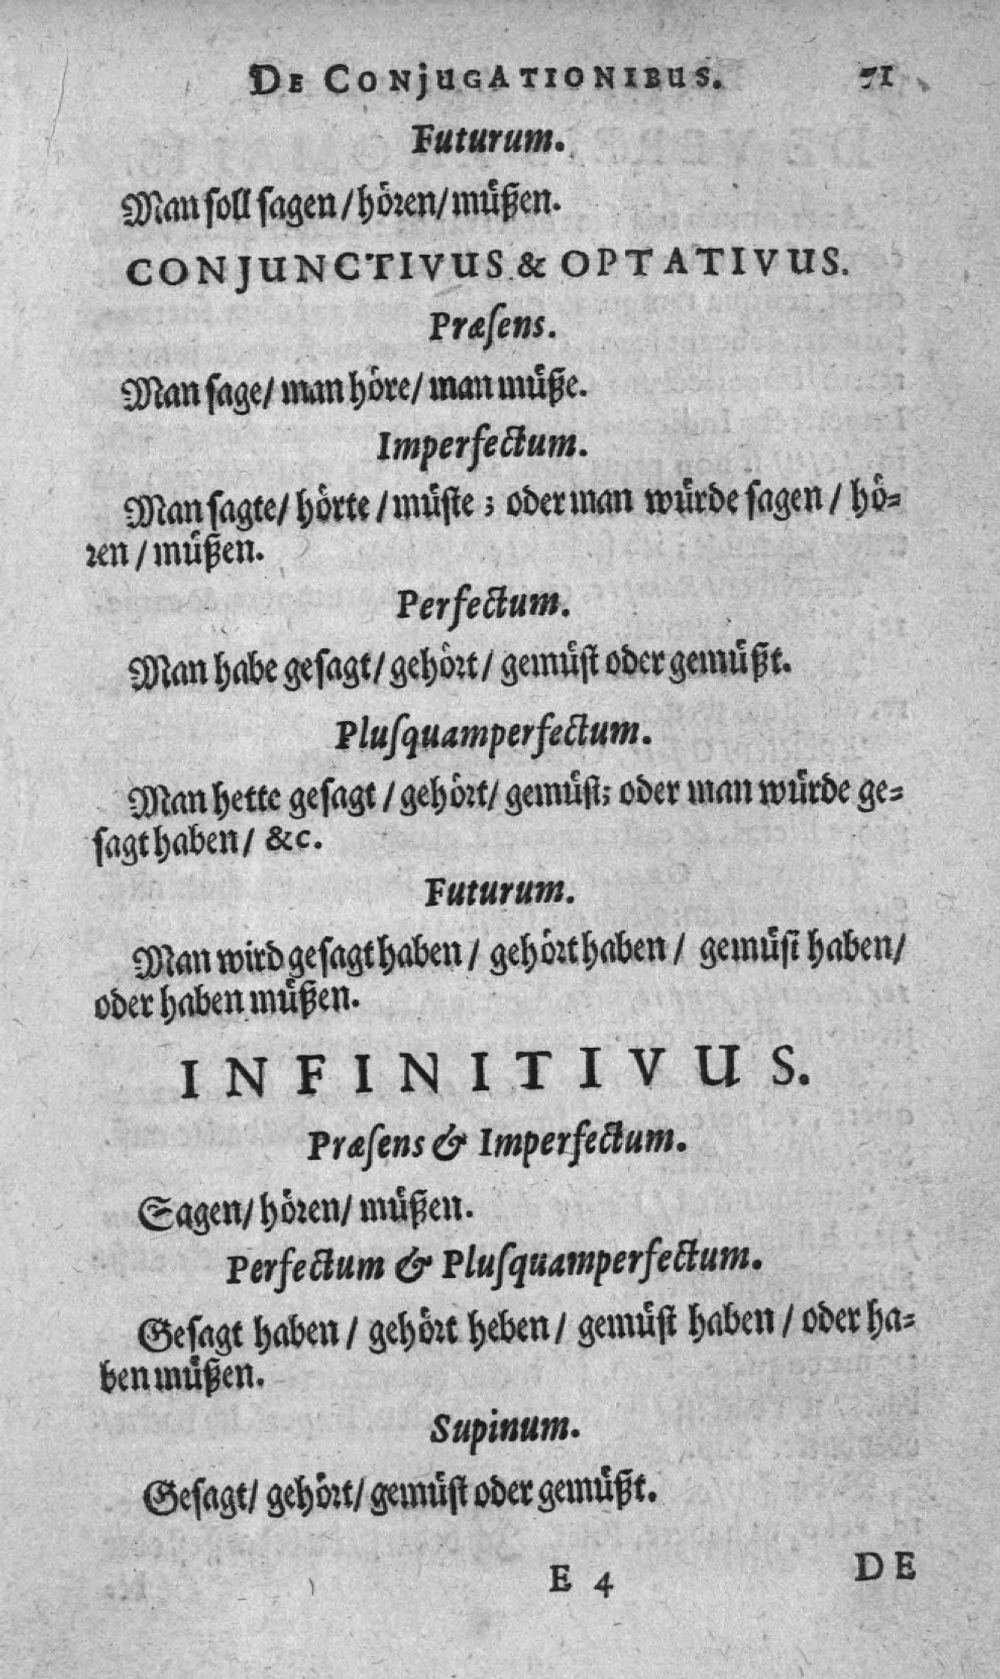 DE CONjUGATIONIBUS. 71
Futurum.
Man ſoll ſagen / hoͤren / muͤßen.
CONJUNCTIVUS & OPTATIVUS.
Præſens.
Man ſage / man hoͤre / man muͤße.
Imperfectum.
Man ſagte / hoͤrte / muͤſte ; oder man wuͤrde ſagen / hoͤ⸗
ren / muͤßen.
Perfectum.
Man habe geſagt / gehoͤrt / gemuͤſt oder gemuͤßt.
Pluſquamperfectum.
Man hette geſagt / gehoͤrt / gemuͤſt; oder man wuͤrde ge⸗
ſagt haben / &c.
Futurum.
Man wird geſagt haben / gehoͤrt haben / gemuͤſt haben /
oder haben muͤßen.
INFINITIVUS.
Præſens & Imperfectum.
Sagen / hoͤren / muͤßen.
Perfectum & Pluſquamperfectum.
Geſagt haben / gehoͤrt heben / gemuͤſt haben / oder ha⸗
ben muͤßen.
Supinum.
Geſagt / gehoͤrt / gemuͤſt oder gemuͤßt.
E 4 DE